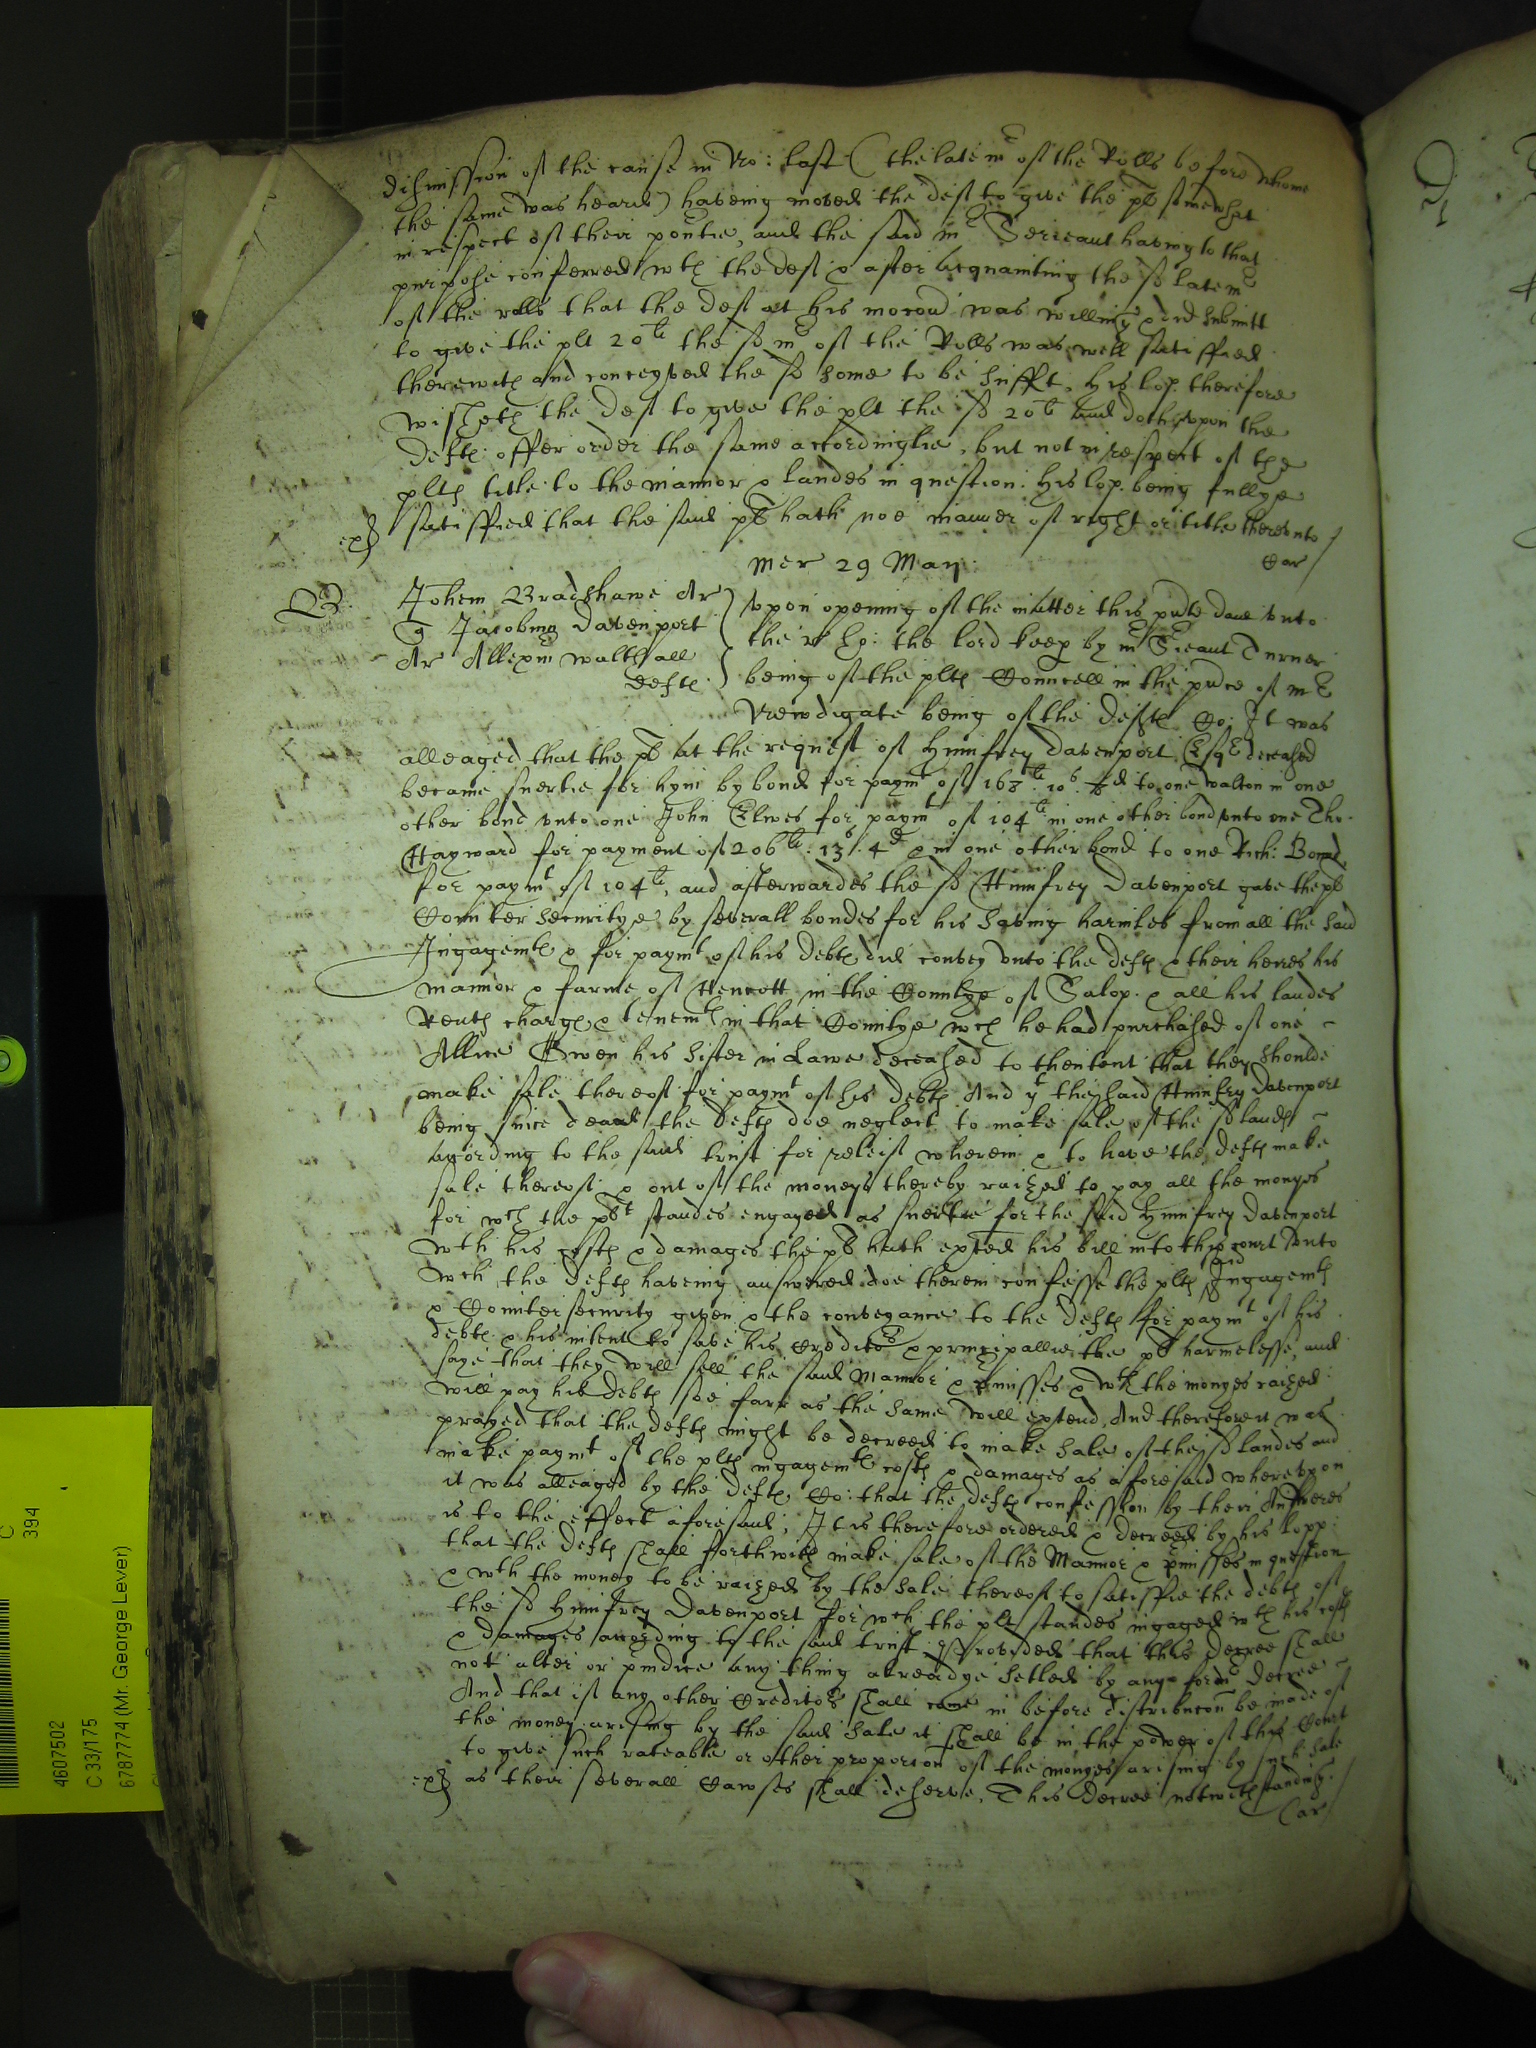 dismission of the cause in No: last (the late mr of the Rolls before whome
the same was heard) haveing moved the deft to give the pl somewhat
in respect of their povertie, and the said mr Serieant having to that
purpose conferred wth the deft & after acquainting the sd late mr
of the rolls that the deft at his mocon was willing & did submitt
to give the plt 20li the sd mr of the Rolls was well satisffied
therewith and conceyved the sd some to be suffit, His lop. therefore
wisheth the deft to give the plt the sd 20li and doth upon the
defts offer order the same accordinglie, but not in respect of the
plts title to the mannor & landes in question. His lop. being fullye
satisffied that the said pl hath noe manner of right or title thereunto
ex
Car
Mer 29 Maij
Johem Bradshawe Ar
q Jacobum Davenport
Ar Allexm Walthall
defts
Upon opening of the matter this pnte daie unto
the r ho: the lord keep by mr Sieant Turner
being of the plts Councell in the pnce of mr
Newdigate being of the defts Co: It was
alleaged that the pl at the request of Humfrey Davenport Esqr deceased
became suertie for hym by bond for paymt of 168li. 10s. 8d to one Walton in one
other bond unto one John Elwes for paymt of 104li in one other bond unto one Tho.
Hayward for payment of 206li: 13s: 4d & in one other bond to one Rich:
for paymt of 104li, and afterwardes the sd Humfrey Davenport gave the pl
Counter securitye by severall bondes for his saving harmles from all the said
Ingagemts & for paymt of his debts did convey unto the defts & their heires his
mannor & farme of Hencott in the Countye of Salop. & all his landes
Rents charges & tenemts in that Countye wch he had purchased of one
Allice Owen his sister in Lawe deceased to thentent that they should
make sale thereof for paymt of his debts And yt the said Humfry Davenport
being since dead the defts doe neglect to make sale of the sd lands
according to the said trust for releif wherein & to have the defts make
sale thereof & out of the moneys thereby raized to pay all the monyes
for wch the plt standes engaged as suertie for the said Humfrey Davenport
wth his costs & damages the pl hath exhted his bill into this court Unto
wch the defts haveing answered doe therein confesse the plts said Ingagemts
& Counter security given & the conveyance to the defts for paymt of his
debts & his intent to save his Creditors & principallie the pl harmelesse, and
saye that they will sell the said Mannor & pmisses & wth the monyes raized
will pay his debts soe farr as the same will extend, And therefore it was
prayed that the defts might be decreed to make sale of the sd landes and
make paymt of the plts ingagemts costs & damages as aforesaid whereupon
it was alleaged by the defts Co: that the defts confession by their Answeres
is to the effect aforesaid; It is therefore ordered & decreed by his lopp
that the defts shall forthwith make sale of the Mannor & pmisses in question
& wth the money to be raized by the sale thereof to satisfie the debts of
the sd Humfrey Davenport for wch the plt standes ingaged wth his costs
& damages according to the said trust. Provided that this decree shall
not alter or piudice any thing alreadye setled by anye former decree
And that if any other Creditors shall come in before distribucon be made of
the money arising by the said sale it shall be in the power of this Court
to give such rateable or other proporcon of the monyes arising by such sale
ex
as their severall Cawses shall deserve, This decree notwithstanding.
Car
C
394
4607502
C 33/175
6787774 (Mr. George Lever)